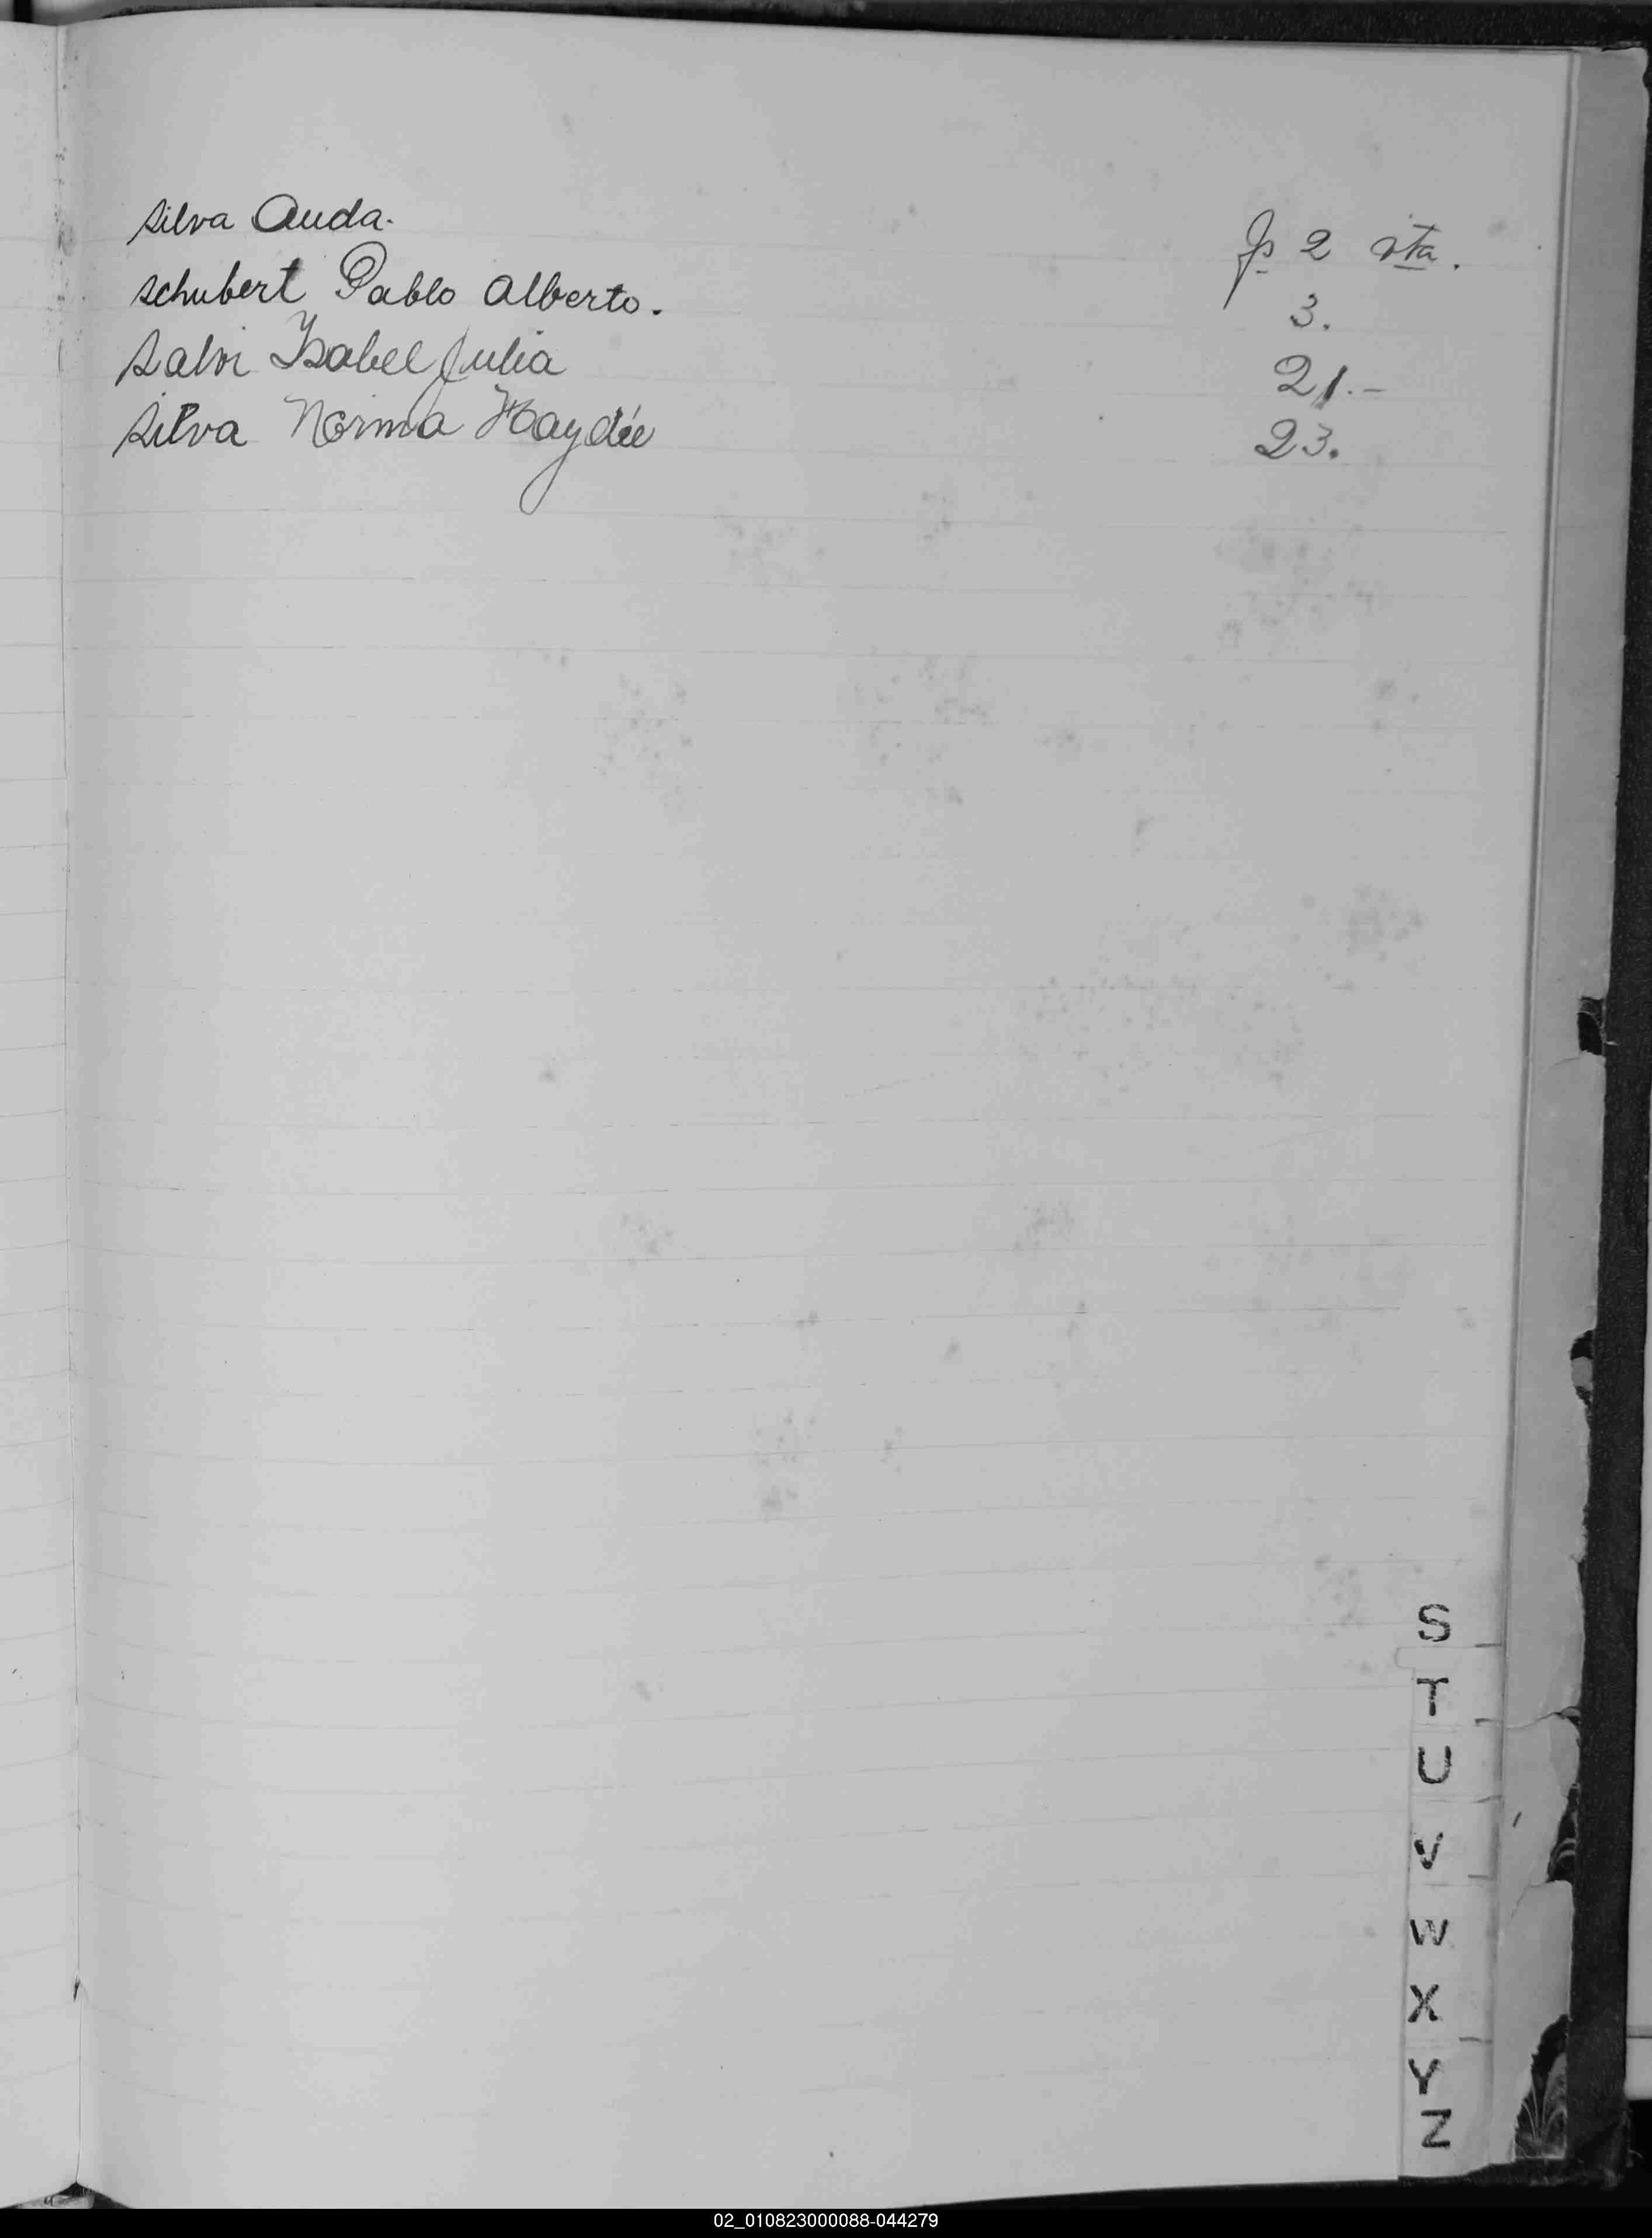 Silva Auda. fs 2 vta.
Schubert Pablo Alberto. 3.
Salvi Isabel Julia 21.-
Silva Norma Haydée 23.
S
T
U
V
W
X
Y
Z
02_010823000088-044279